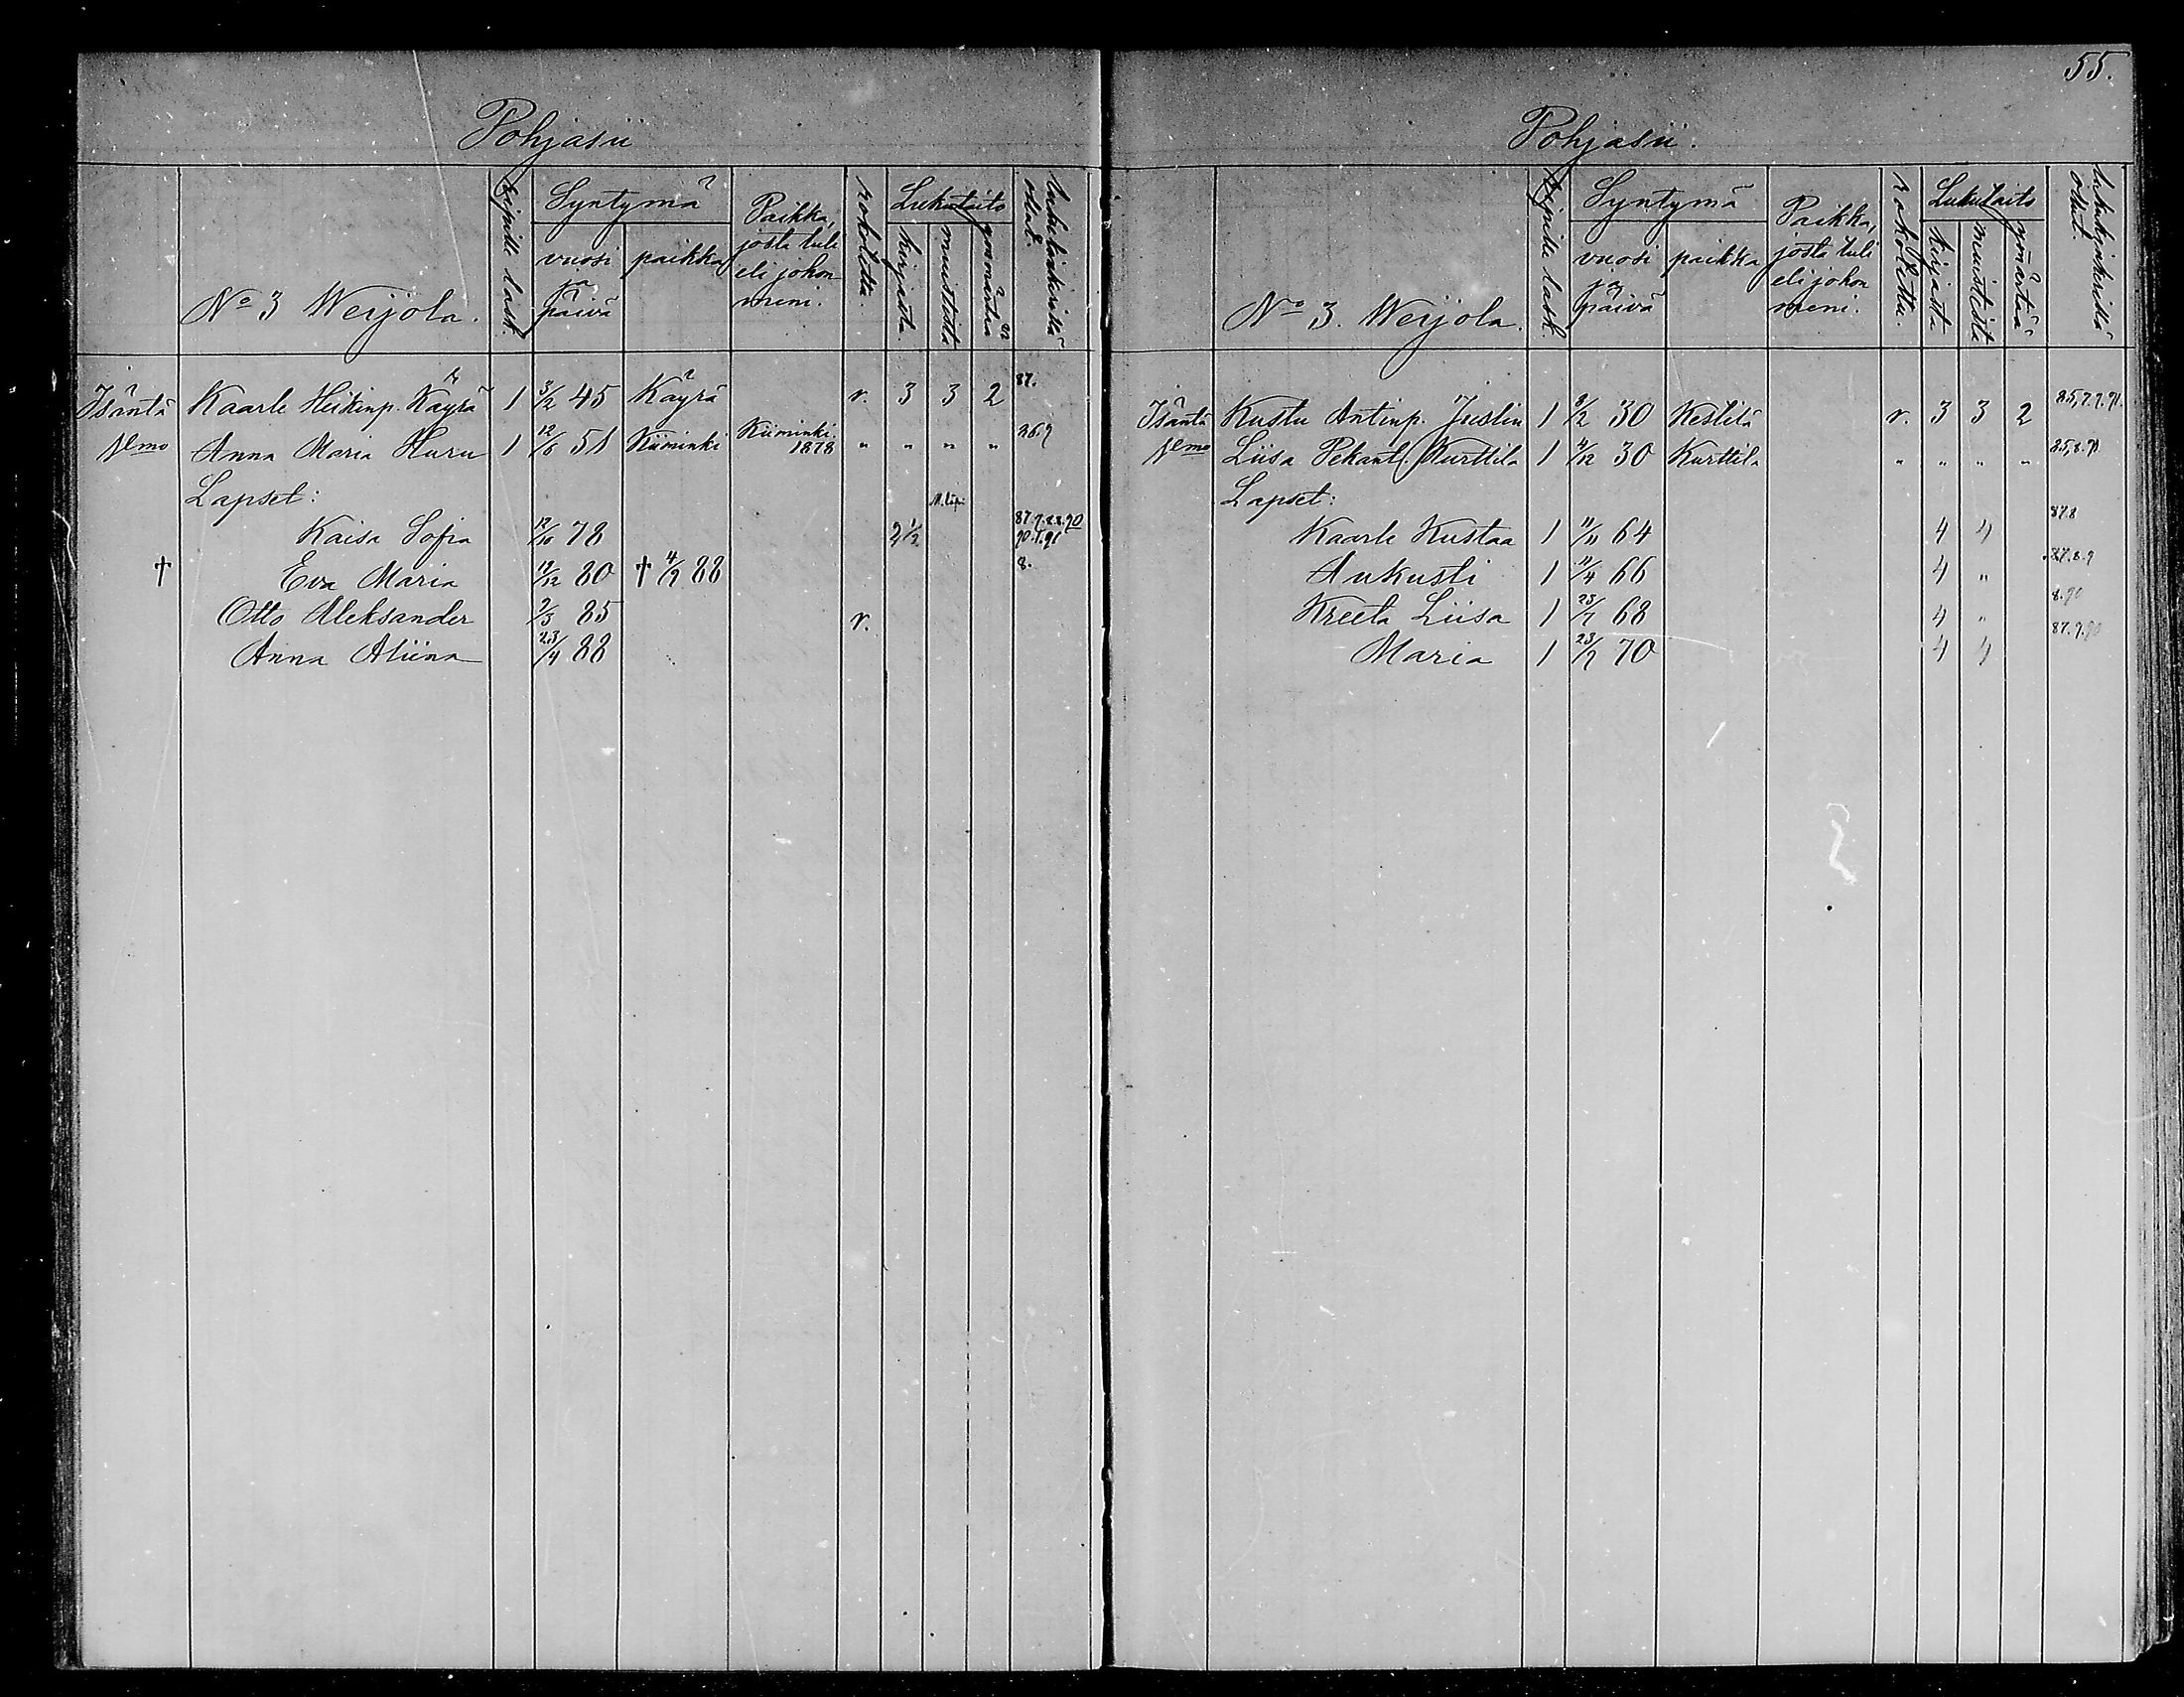 55.
Pohjasii
No 3 Werjola.
Ripille lask.
Syntymä
vuosi ja päivä
paikka
Paikka, josta tuli eli johon meni.
rokotettu.
Lukutaito
kirjasta.
muistista
ymmärtää
lukukinkerillä ollut.
Isäntä Kaarle Heikinp. Käyrä 1 3/2 45 Käyrä r. 3 3 2 87.
Vmo Anna Maria Huru 1 12/6 51 Kiiminki Kiiminki 1878 " " " "
Lapset:
Kaisa Sofia 12/10 78 2 1/2 87.9.88.90 90.1.91
† Eva Maria 12/12 80 † 4/9 88 8.
Otto Aleksander 2/3 85 r.
Anna Aliina 23/4 88
Pohjasii.
No 3. Werjola.
Ripille lask.
Syntymä
vuosi ja päivä
paikka
Paikka, josta tuli eli johon meni.
rokotettu.
Lukutaito
kirjasta
muistista
ymmärtää
lukukinkerillä ollut.
Isäntä Kustu Antinp. Juslin 1 9/2 30 Kestilä r. 3 3 2 85,7.9.91.
Vmo Liisa Pekant. Kurttila 1 4/12 30 Kurttila " " " " 85,8.91
Lapset:
Kaarle Kustaa 1 11/11 64 4 4 87.8
Aukusti 1 11/4 66 4 " 87.8.9
Kreeta Liisa 1 23/7 68 4 " 8.90
Maria 1 23/7 70 4 4 87.9.90